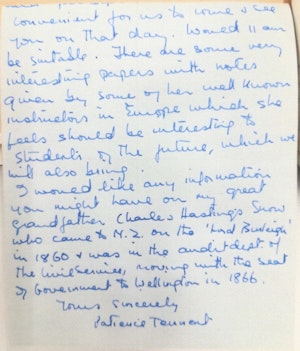 convenient for us to come & see
you on that day. Would 11 am
be suitable. There are some very
interesting papers with notes
given by some of her well known
instructors in Europe which she
feels should be interesting to
students of the future, which we
will also bring.
I would like any information
you might have on my great
grandfather Charles Hastings Snow
who came to N.Z. on the 'Lord Burleigh'
in 1860 & was in the audit dept. of
the Civil Service, moving with the seat
of Government to Wellington in 1866.
Yours sincerely
Patience Tennent